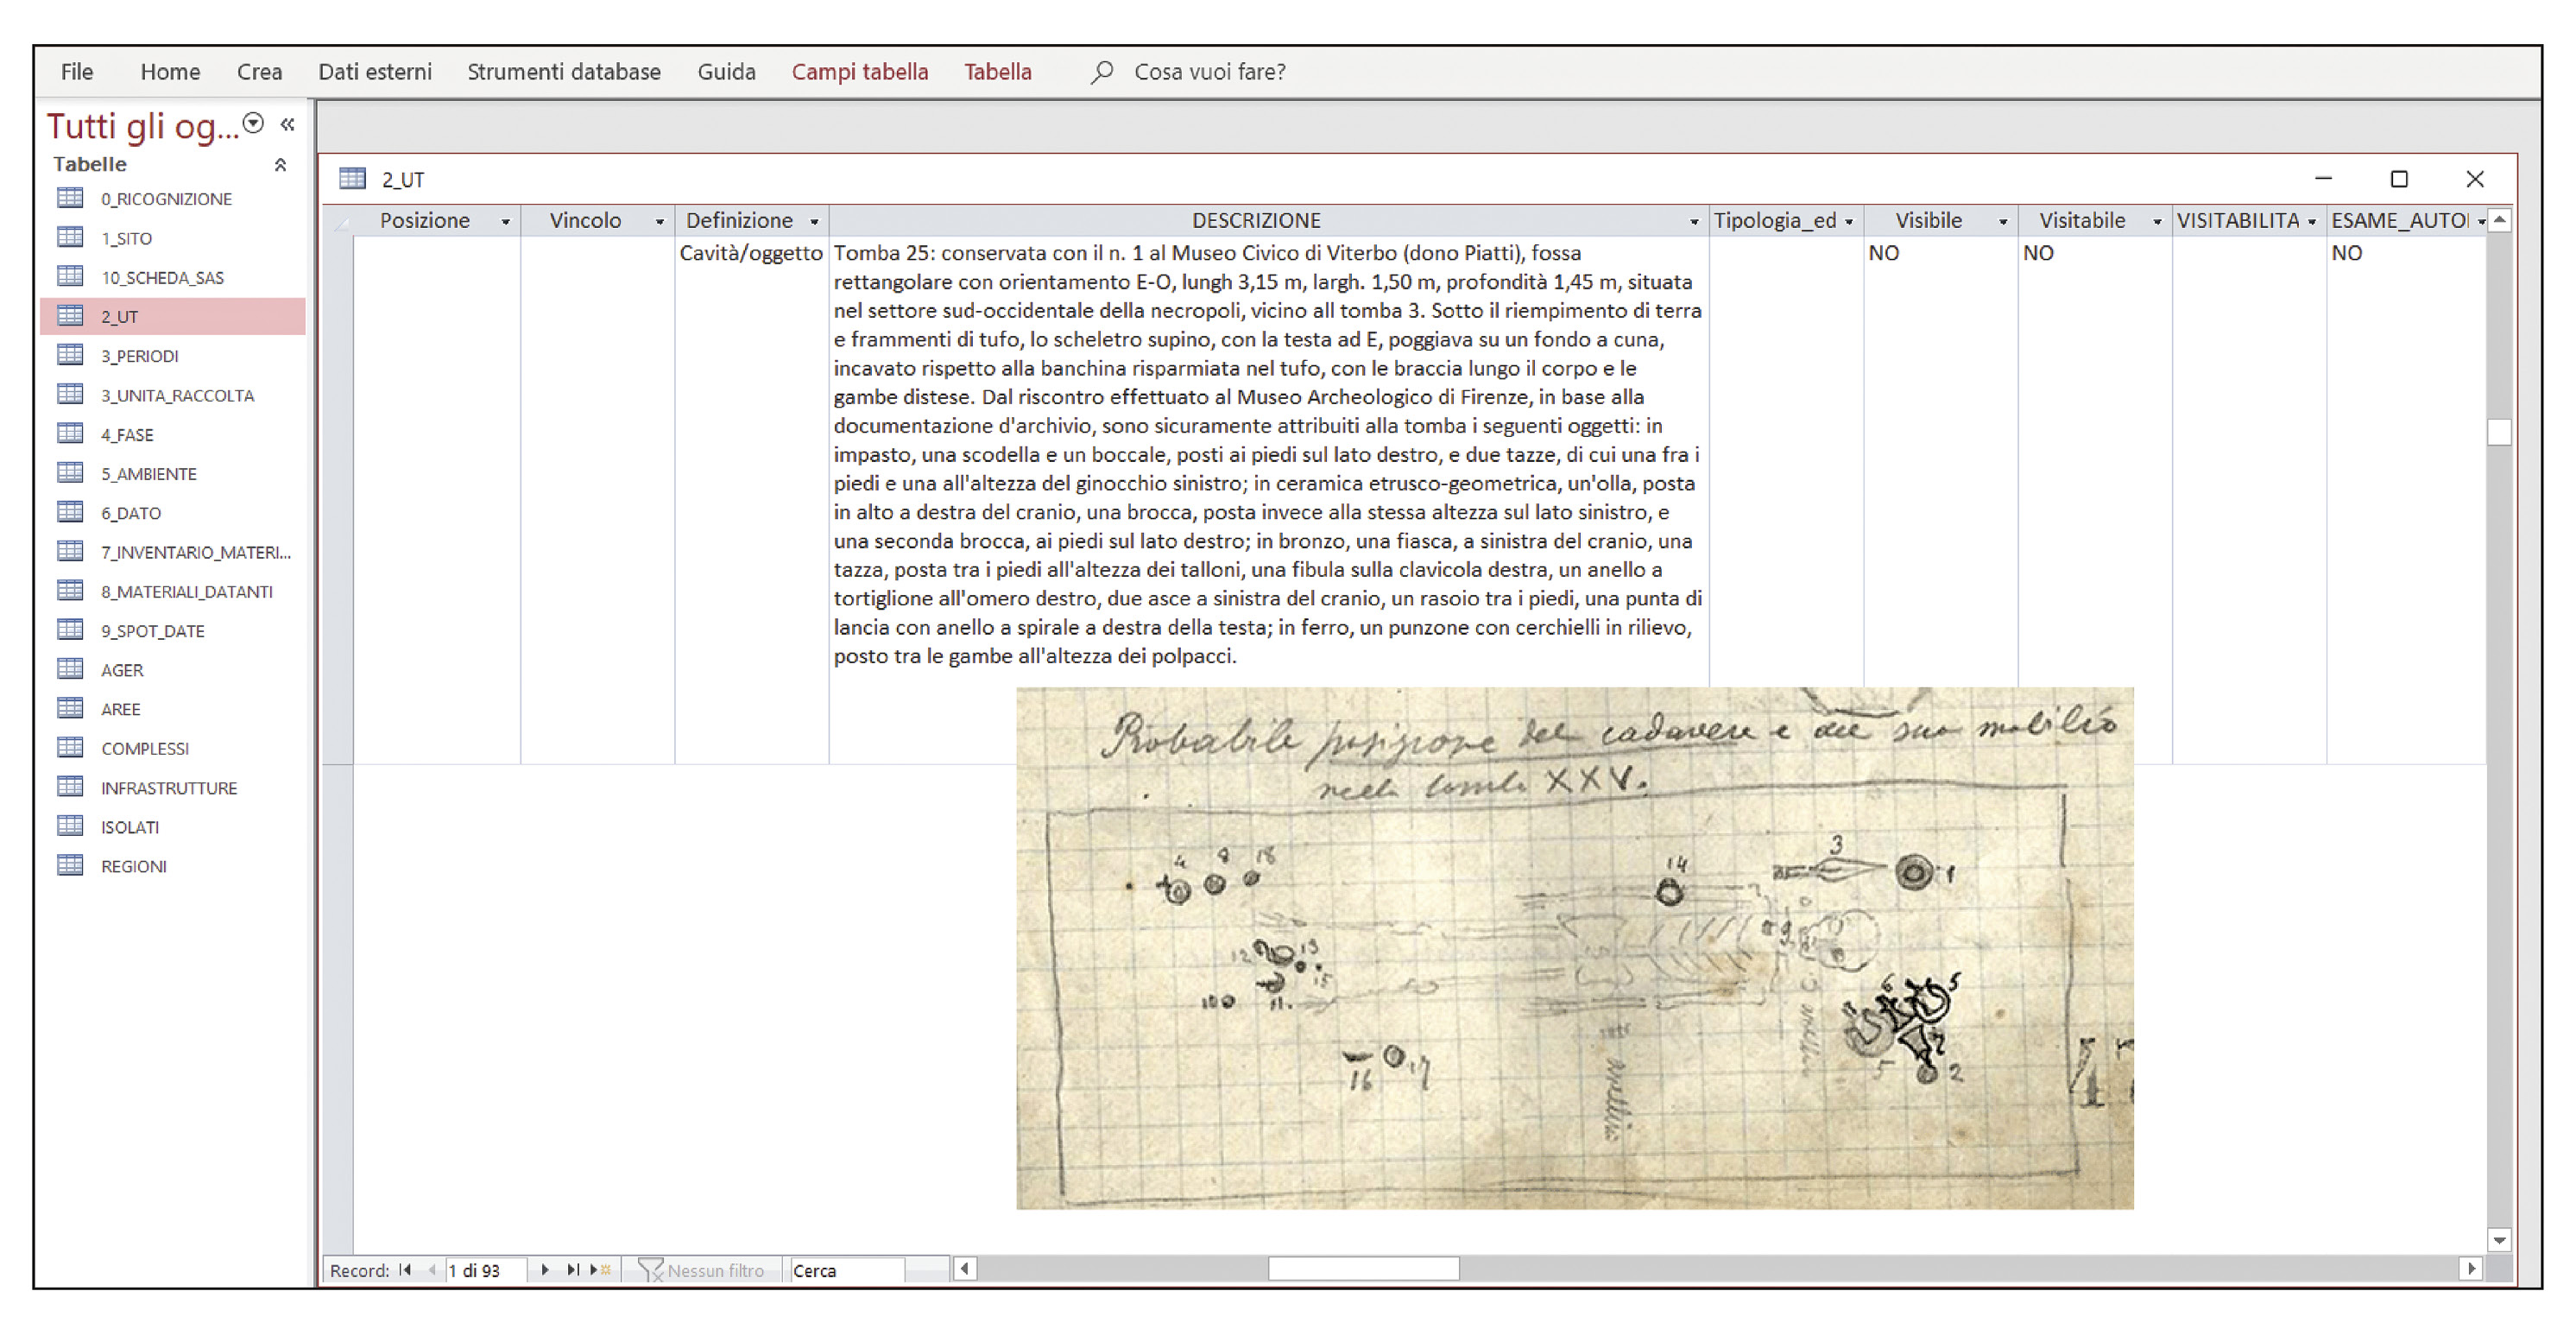 File Home Crea Dati esterni Strumenti database Guida Campi tabella Tabella Cosa vuoi fare?
Tutti gli og...
Tabelle
0_RICOGNIZIONE
1_SITO
10_SCHEDA_SAS
2_UT
3_PERIODI
3_UNITA_RACCOLTA
4_FASE
5_AMBIENTE
6_DATO
7_INVENTARIO_MATERI...
8_MATERIALI_DATANTI
9_SPOT_DATE
AGER
AREE
COMPLESSI
INFRASTRUTTURE
ISOLATI
REGIONI
2_UT
Posizione Vincolo Definizione DESCRIZIONE Tipologia_ed Visibile Visitabile VISITABILITA ESAME_AUTO
Cavità/oggetto
Tomba 25: conservata con il n. 1 al Museo Civico di Viterbo (dono Piatti), fossa
rettangolare con orientamento E-O, lungh 3,15 m, largh. 1,50 m, profondità 1,45 m, situata
nel settore sud-occidentale della necropoli, vicino all tomba 3. Sotto il riempimento di terra
e frammenti di tufo, lo scheletro supino, con la testa ad E, poggiava su un fondo a cuna,
incavato rispetto alla banchina risparmiata nel tufo, con le braccia lungo il corpo e le
gambe distese. Dal riscontro effettuato al Museo Archeologico di Firenze, in base alla
documentazione d'archivio, sono sicuramente attribuiti alla tomba i seguenti oggetti: in
impasto, una scodella e un boccale, posti ai piedi sul lato destro, e due tazze, di cui una fra i
piedi e una all'altezza del ginocchio sinistro; in ceramica etrusco-geometrica, un'olla, posta
in alto a destra del cranio, una brocca, posta invece alla stessa altezza sul lato sinistro, e
una seconda brocca, ai piedi sul lato destro; in bronzo, una fiasca, a sinistra del cranio, una
tazza, posta tra i piedi all'altezza dei talloni, una fibula sulla clavicola destra, un anello a
tortiglione all'omero destro, due asce a sinistra del cranio, un rasoio tra i piedi, una punta di
lancia con anello a spirale a destra della testa; in ferro, un punzone con cerchielli in rilievo,
posto tra le gambe all'altezza dei polpacci.
NO NO NO
Probabile posizione del cadavere e del suo mobilio
nella tomba XXV.
4 8 18
14
3
1
12 13
15
10 11.
9
6 5
7
5 2
16 17
anellino
Record: 1 di 93 Nessun filtro Cerca